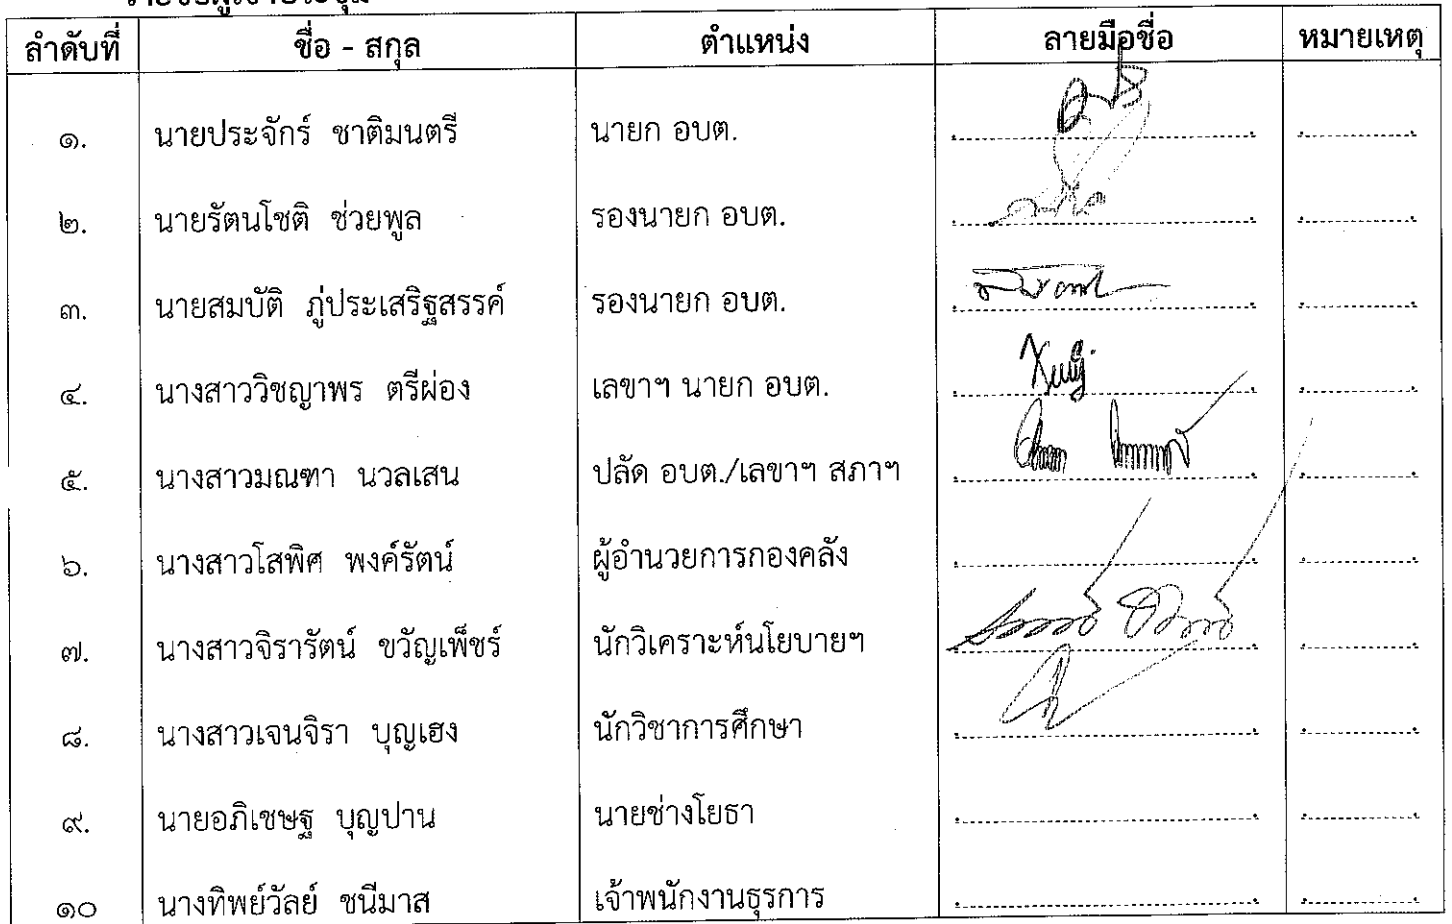 ลำดับที่ ชื่อ - สกุล ตำแหน่ง ลายมือชื่อ หมายเหตุ
๑. นายประจักร์ ชาติมนตรี นายก อบต.
๒. นายรัตนโชติ ช่วยพูล รองนายก อบต.
๓. นายสมบัติ ภู่ประเสริฐสรรค์ รองนายก อบต.
๔. นางสาววิชญาพร ตรีผ่อง เลขาฯ นายก อบต.
๕. นางสาวมณฑา นวลเสน ปลัด อบต./เลขาฯ สภาฯ
๖. นางสาวโสพิศ พงค์รัตน์ ผู้อำนวยการกองคลัง
๗. นางสาวจิรารัตน์ ขวัญเพ็ชร์ นักวิเคราะห์นโยบายฯ
๘. นางสาวเจนจิรา บุญเฮง นักวิชาการศึกษา
๙. นายอภิเชษฐ บุญปาน นายช่างโยธา
๑๐ นางทิพย์วัลย์ ชนีมาส เจ้าพนักงานธุรการ